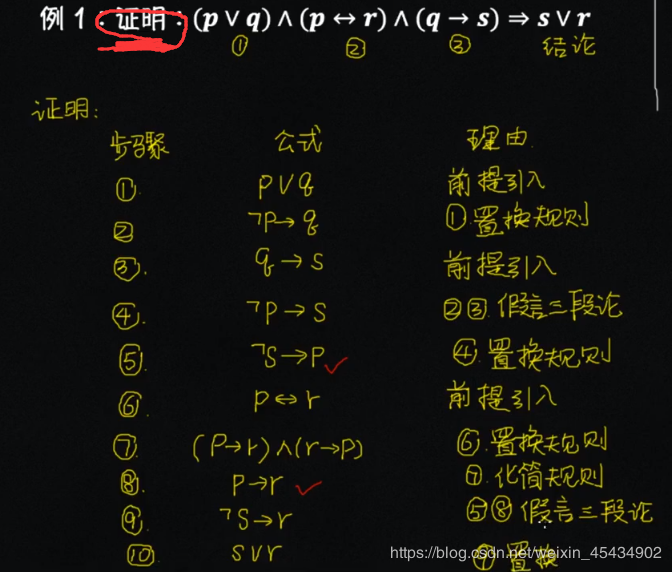 例 1：证明：(p ∨ q) ∧ (p ↔ r) ∧ (q → s) ⇒ s ∨ r
① ② ③ 结论
证明：
步骤 公式 理由
① p∨q 前提引入
② ¬p→q ①置换规则
③. q→s 前提引入
④. ¬p→s ②③.假言三段论
⑤ ¬s→p ✓ ④.置换规则
⑥ p↔r 前提引入
⑦ (p→r)∧(r→p) ⑥.置换规则
⑧. p→r ✓ ⑦.化简规则
⑨. ¬s→r ⑤⑧假言三段论
⑩ s∨r ⑨置换
https://blog.csdn.net/weixin_45434902